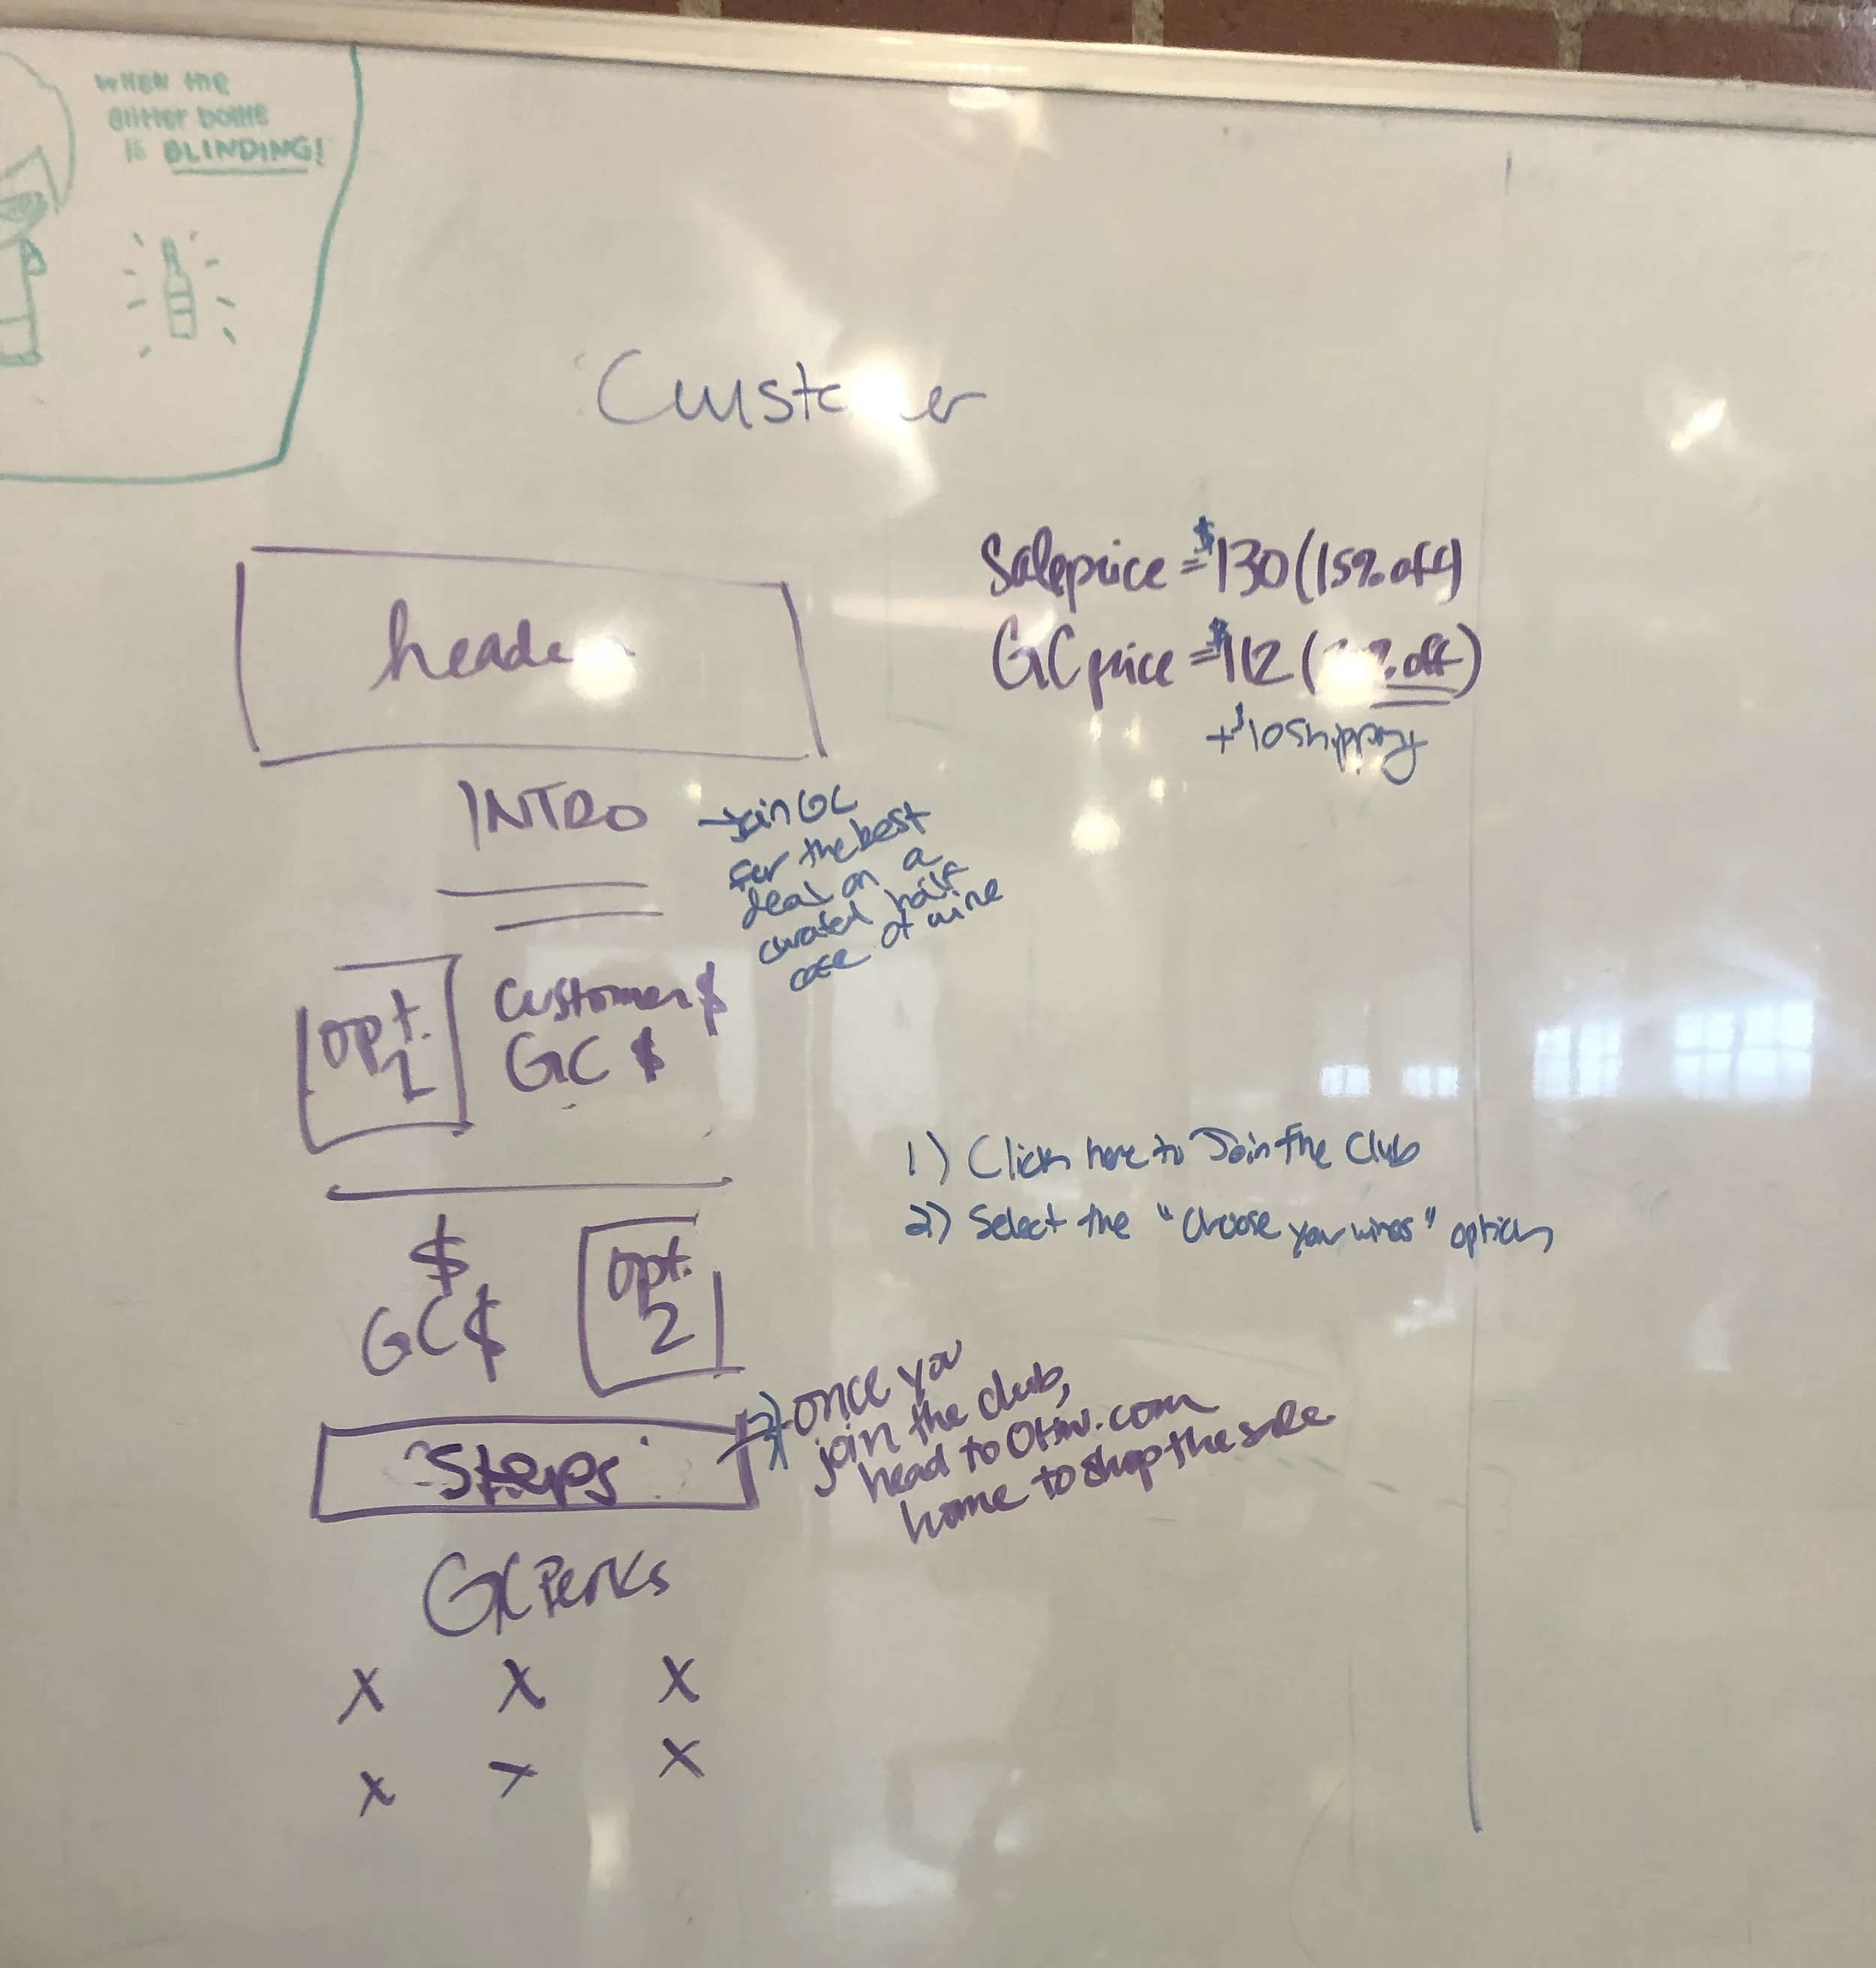 WHEN THE
GLITTER BOTTLE
IS BLINDING!
Customer
Sale price = $130 (15% off)
GC price = $112 ( % off)
+ $10 shipping
header
INTRO
→ Join GC
for the best
deal on a
curated half
case of wine
opt.
1
customer $
GC $
1) Click here to Join the Club
2) Select the "Choose your wines" option
$
GC $
opt.
2
Steps
3) once you
join the club,
head to
home to shop the sale
GC Perks
X X X
X X X